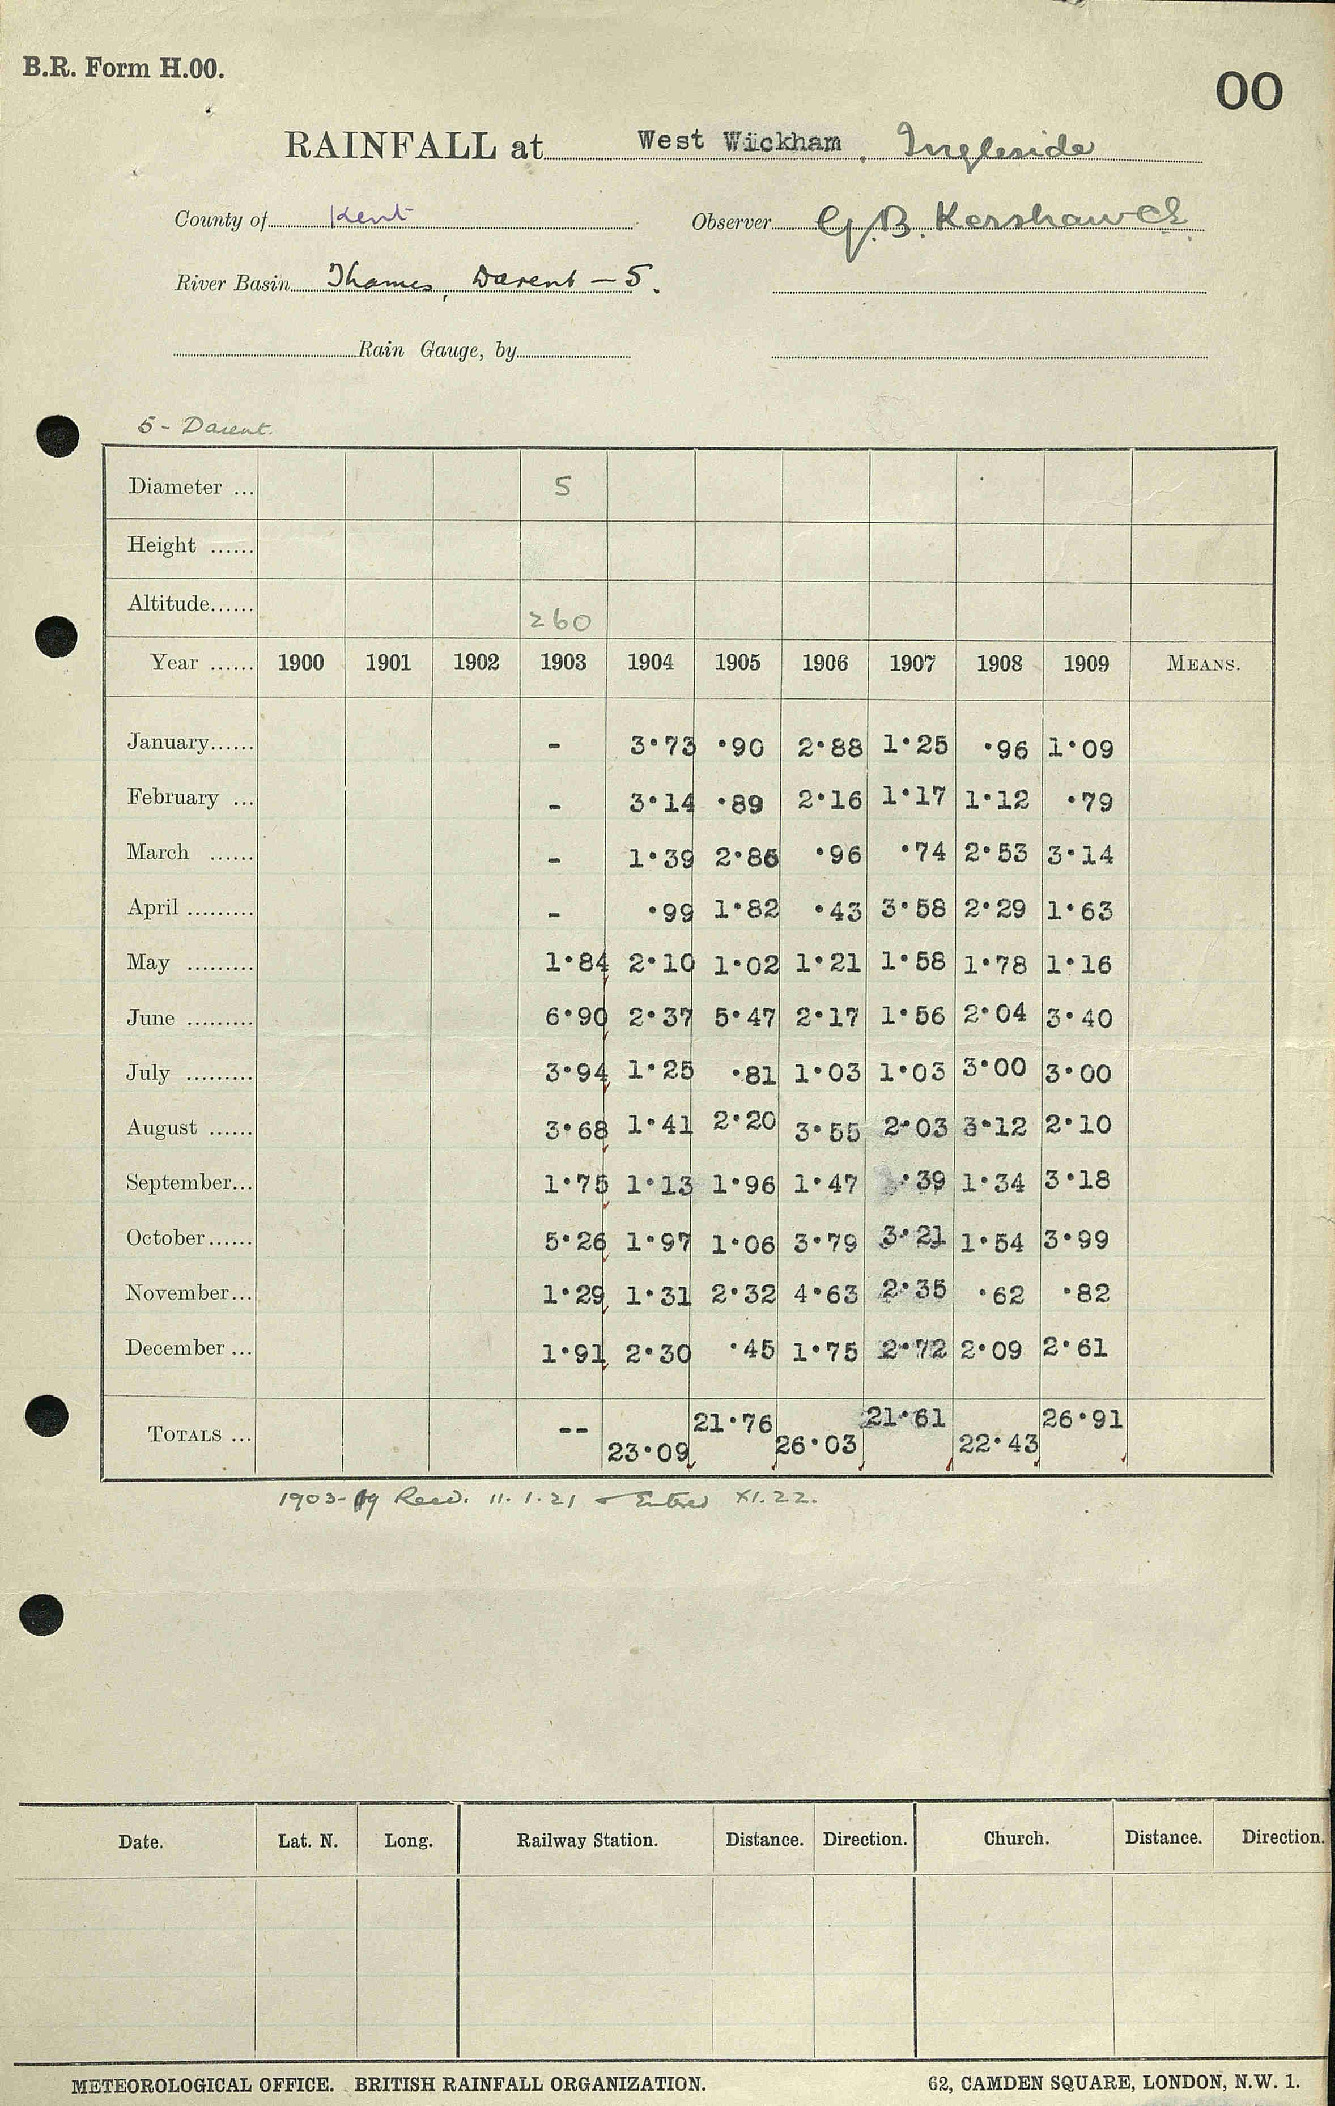 B.R. Form H.00.
00
RAINFALL at West Wickham, Ingleside
County of Kent Observer G.B. Kershaw
River Basin Thames, Darent - 5.
Rain Gauge, by
5 - Darent.
Diameter ... 5
Height ......
Altitude...... 260
Year ...... 1900 1901 1902 1903 1904 1905 1906 1907 1908 1909 MEANS.
January...... - 3·73 ·90 2·88 1·25 ·96 1·09
February ... - 3·14 ·89 2·16 1·17 1·12 ·79
March ...... - 1·39 2·86 ·96 ·74 2·53 3·14
April ......... - ·99 1·82 ·43 3·58 2·29 1·63
May ......... 1·84 2·10 1·02 1·21 1·58 1·78 1·16
June ......... 6·90 2·37 5·47 2·17 1·56 2·04 3·40
July ......... 3·94 1·25 ·81 1·03 1·03 3·00 3·00
August ...... 3·68 1·41 2·20 3·55 2·03 3·12 2·10
September... 1·75 1·13 1·96 1·47 ·39 1·34 3·18
October...... 5·26 1·97 1·06 3·79 3·21 1·54 3·99
November... 1·29 1·31 2·32 4·63 2·35 ·62 ·82
December ... 1·91 2·30 ·45 1·75 2·72 2·09 2·61
TOTALS ... -- 23·09 21·76 26·03 21·61 22·43 26·91
1903-09 Recd. 11.1.21 Entered XI.22.
Date. Lat. N. Long. Railway Station. Distance. Direction. Church. Distance. Direction.
METEOROLOGICAL OFFICE. BRITISH RAINFALL ORGANIZATION. 62, CAMDEN SQUARE, LONDON, N.W. 1.